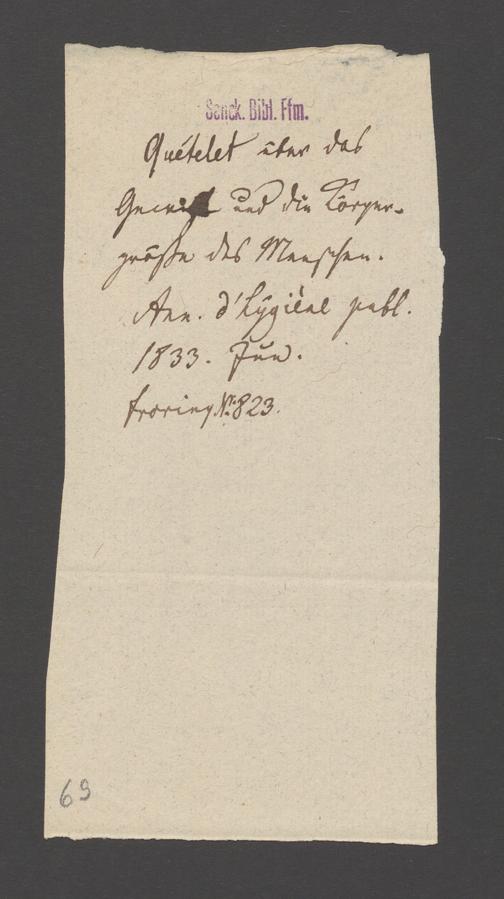 Senck. Bibl. Ffm.
Quételet über das
Gewicht und die Körper-
größe des Menschen.
Ann. d'hygiène publ.
1833. Jun.
Froriep No. 823.
69